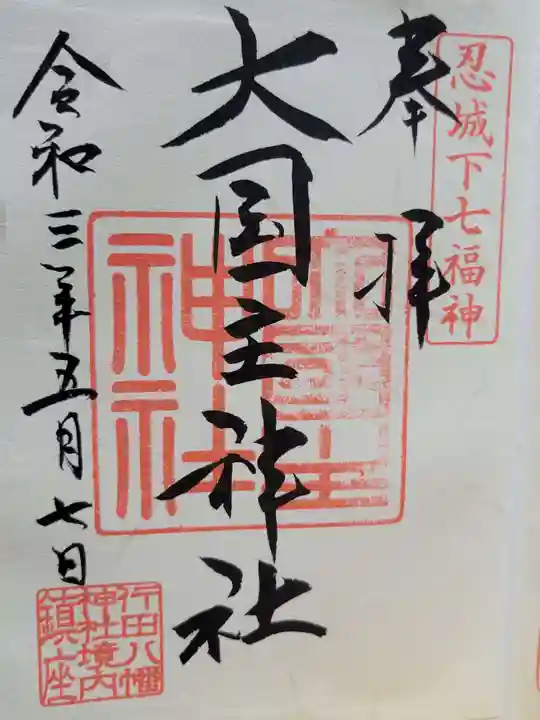 忍城下七福神
奉拝
大国主神社
令和三年五月七日
行田八幡
神社境内
鎮座